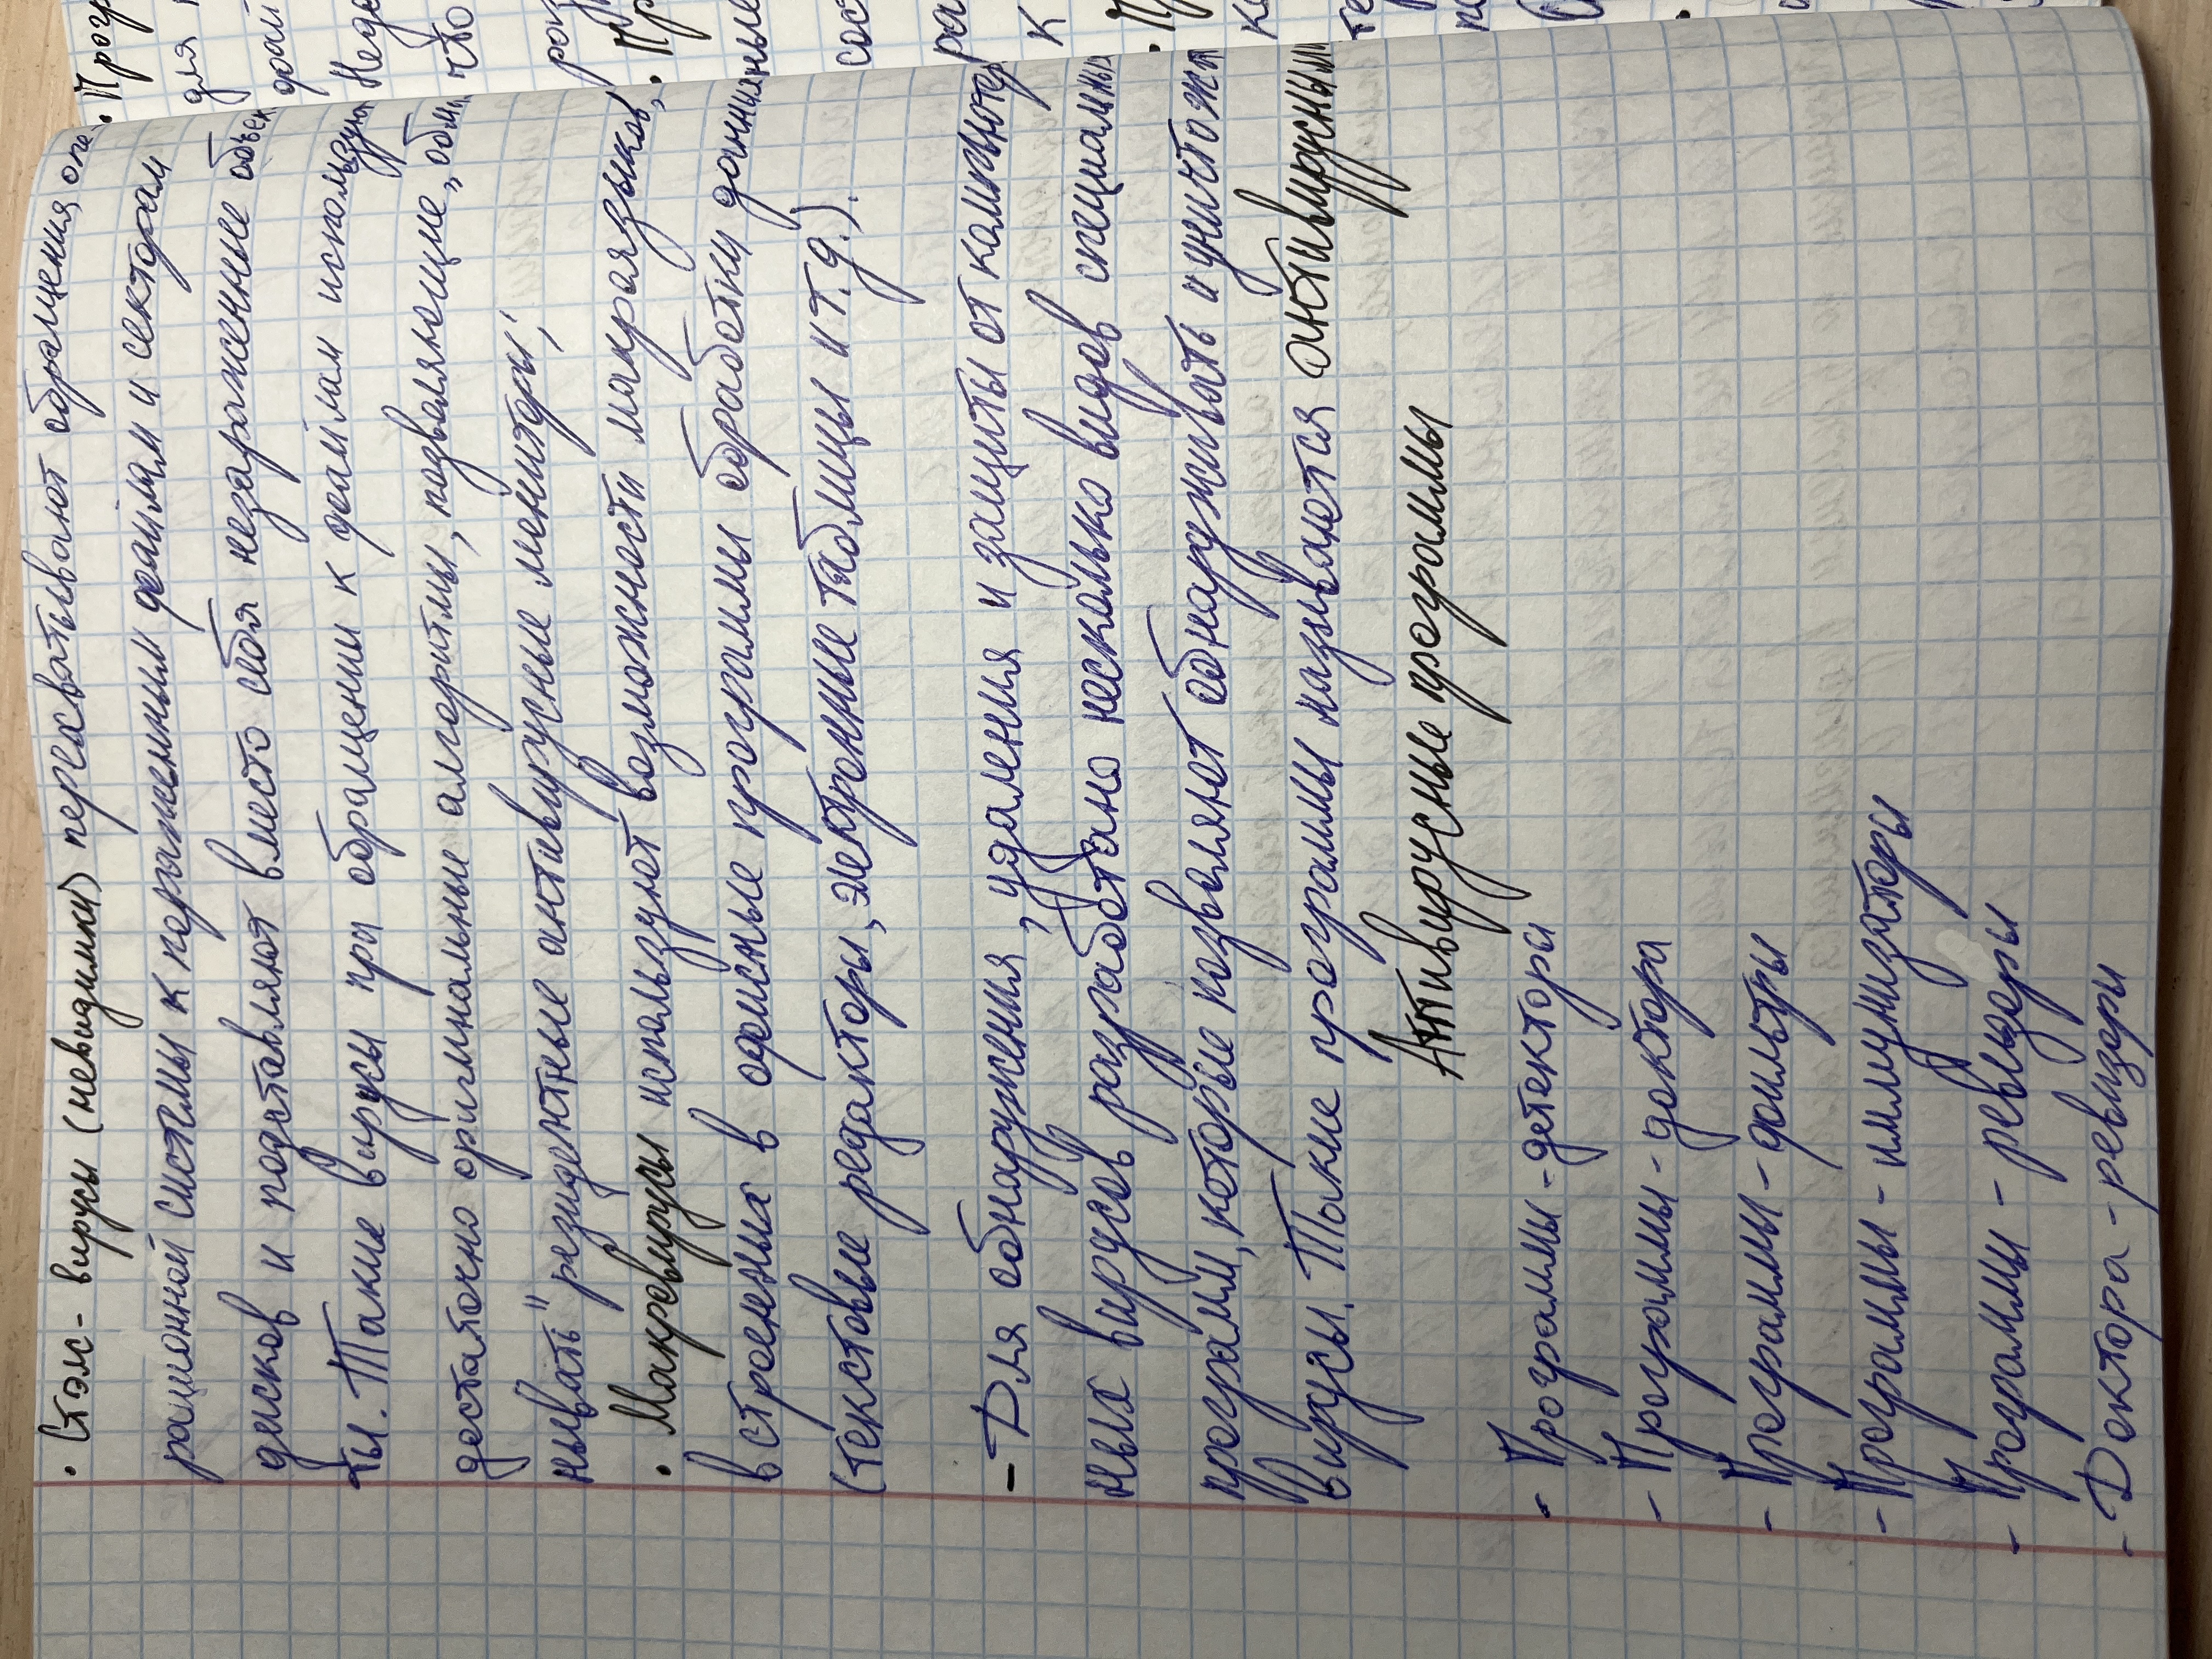 · Стэлс-вирусы (невидимки) перехватывают обращения опе
рационной системы к пораженным файлам и секторам
дисков и подставляют вместо себя незараженные объек
ты. Такие вирусы при обращении к файлам используют
достаточно оригинальные алгоритмы, позволяющие „обма
нывать" резидентные антивирусные мониторы;
· Макровирусы используют возможности макроязыков,
встроенных в офисные программы обработки данных
(текстовые редакторы, электронные таблицы и т.д.).
- Для обнаружения, удаления и защиты от компьютер
ных вирусов разработано несколько видов специальных
программ, которые позволяют обнаруживать и уничтожать
вирусы. Такие программы называются антивирусными
Антивирусные программы
- Программы-детектора
- Программы-доктора
- Программы-фильтры
- Программы-иммунизаторы
- Программы-ревизоры
- Доктора-ревизоры
· Прог
для
фай
Недо
что
раз
· Пр
ные
сос
ра
к
· П
к
те